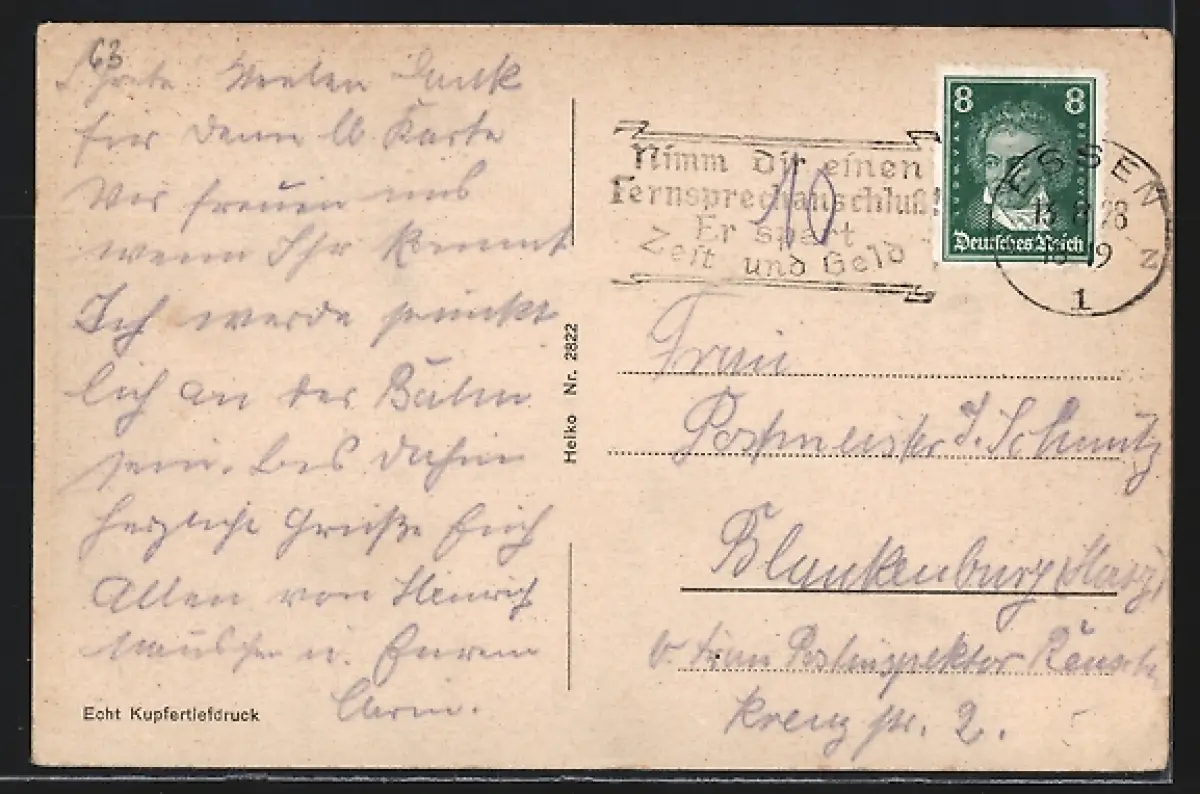 63
Grete Vielen Dank
für Deine lb Karte
Wir freuen uns
wenn Ihr kommt
Ich werde pünkt
lich an der Bahn
sein. bis dahin
herzliche Grüße Euch
Allen von Heinrich
u. Eurem
Echt Kupfertiefdruck
Heiko Nr. 2822
Nimm Dir einen
Fernsprechanschluß!
Er spart
Zeit und Geld
8 8
LUDW. VAN BEETHOVEN
Deutsches Reich
ESSEN
13.8.28
18-19
1
Z
Frau
Postmeister J. Schmitz
Blankenburg (Harz)
b. Frau Postinspektor
Kreuzstr. 2.